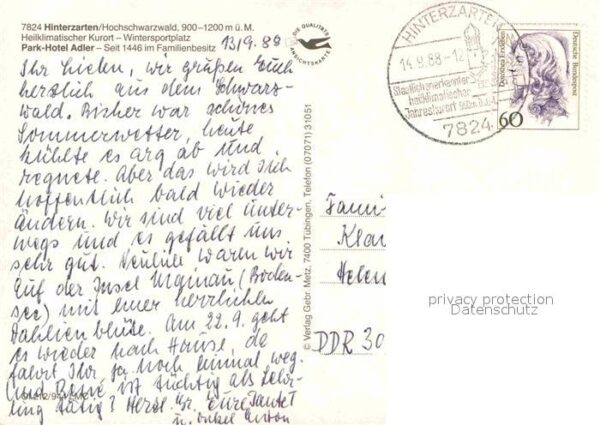 7824 Hinterzarten/Hochschwarzwald, 900–1200 m ü. M.
Heilklimatischer Kurort – Wintersportplatz
Park-Hotel Adler – Seit 1446 im Familienbesitz
13/9.88
Ihr Lieben, wir grüßen Euch
herzlich aus dem Schwarz-
wald. Bisher war schönes
Sommerwetter, heute
kühlte es arg ab und
regnete. Aber das wird sich
hoffentlich bald wieder
ändern. Wir sind viel unter-
wegs und es gefällt uns
sehr gut. Neulich waren wir
auf der Insel (Boden-
see) mit einer herrlichen
Dahlienblüte. Am 22.9. geht
es wieder nach Hause, da
fahrt Ihr ja noch einmal weg.
Und René ist tüchtig als Lehr-
ling tätig? Herzl. Gr. Eure Tante T
u. Onkel Anton
DIE QUALITÄTS
ANSICHTSKARTE
© Verlag Gebr. Metz, 7400 Tübingen, Telefon (07071) 31051
HINTERZARTEN
14.9.88-12
Staatlich anerkannter
heilklimatischer
Jahreskurort
7824
Deutsche Bundespost
60
Fami
Kla
Helen
DDR 30
privacy protection
Datenschutz